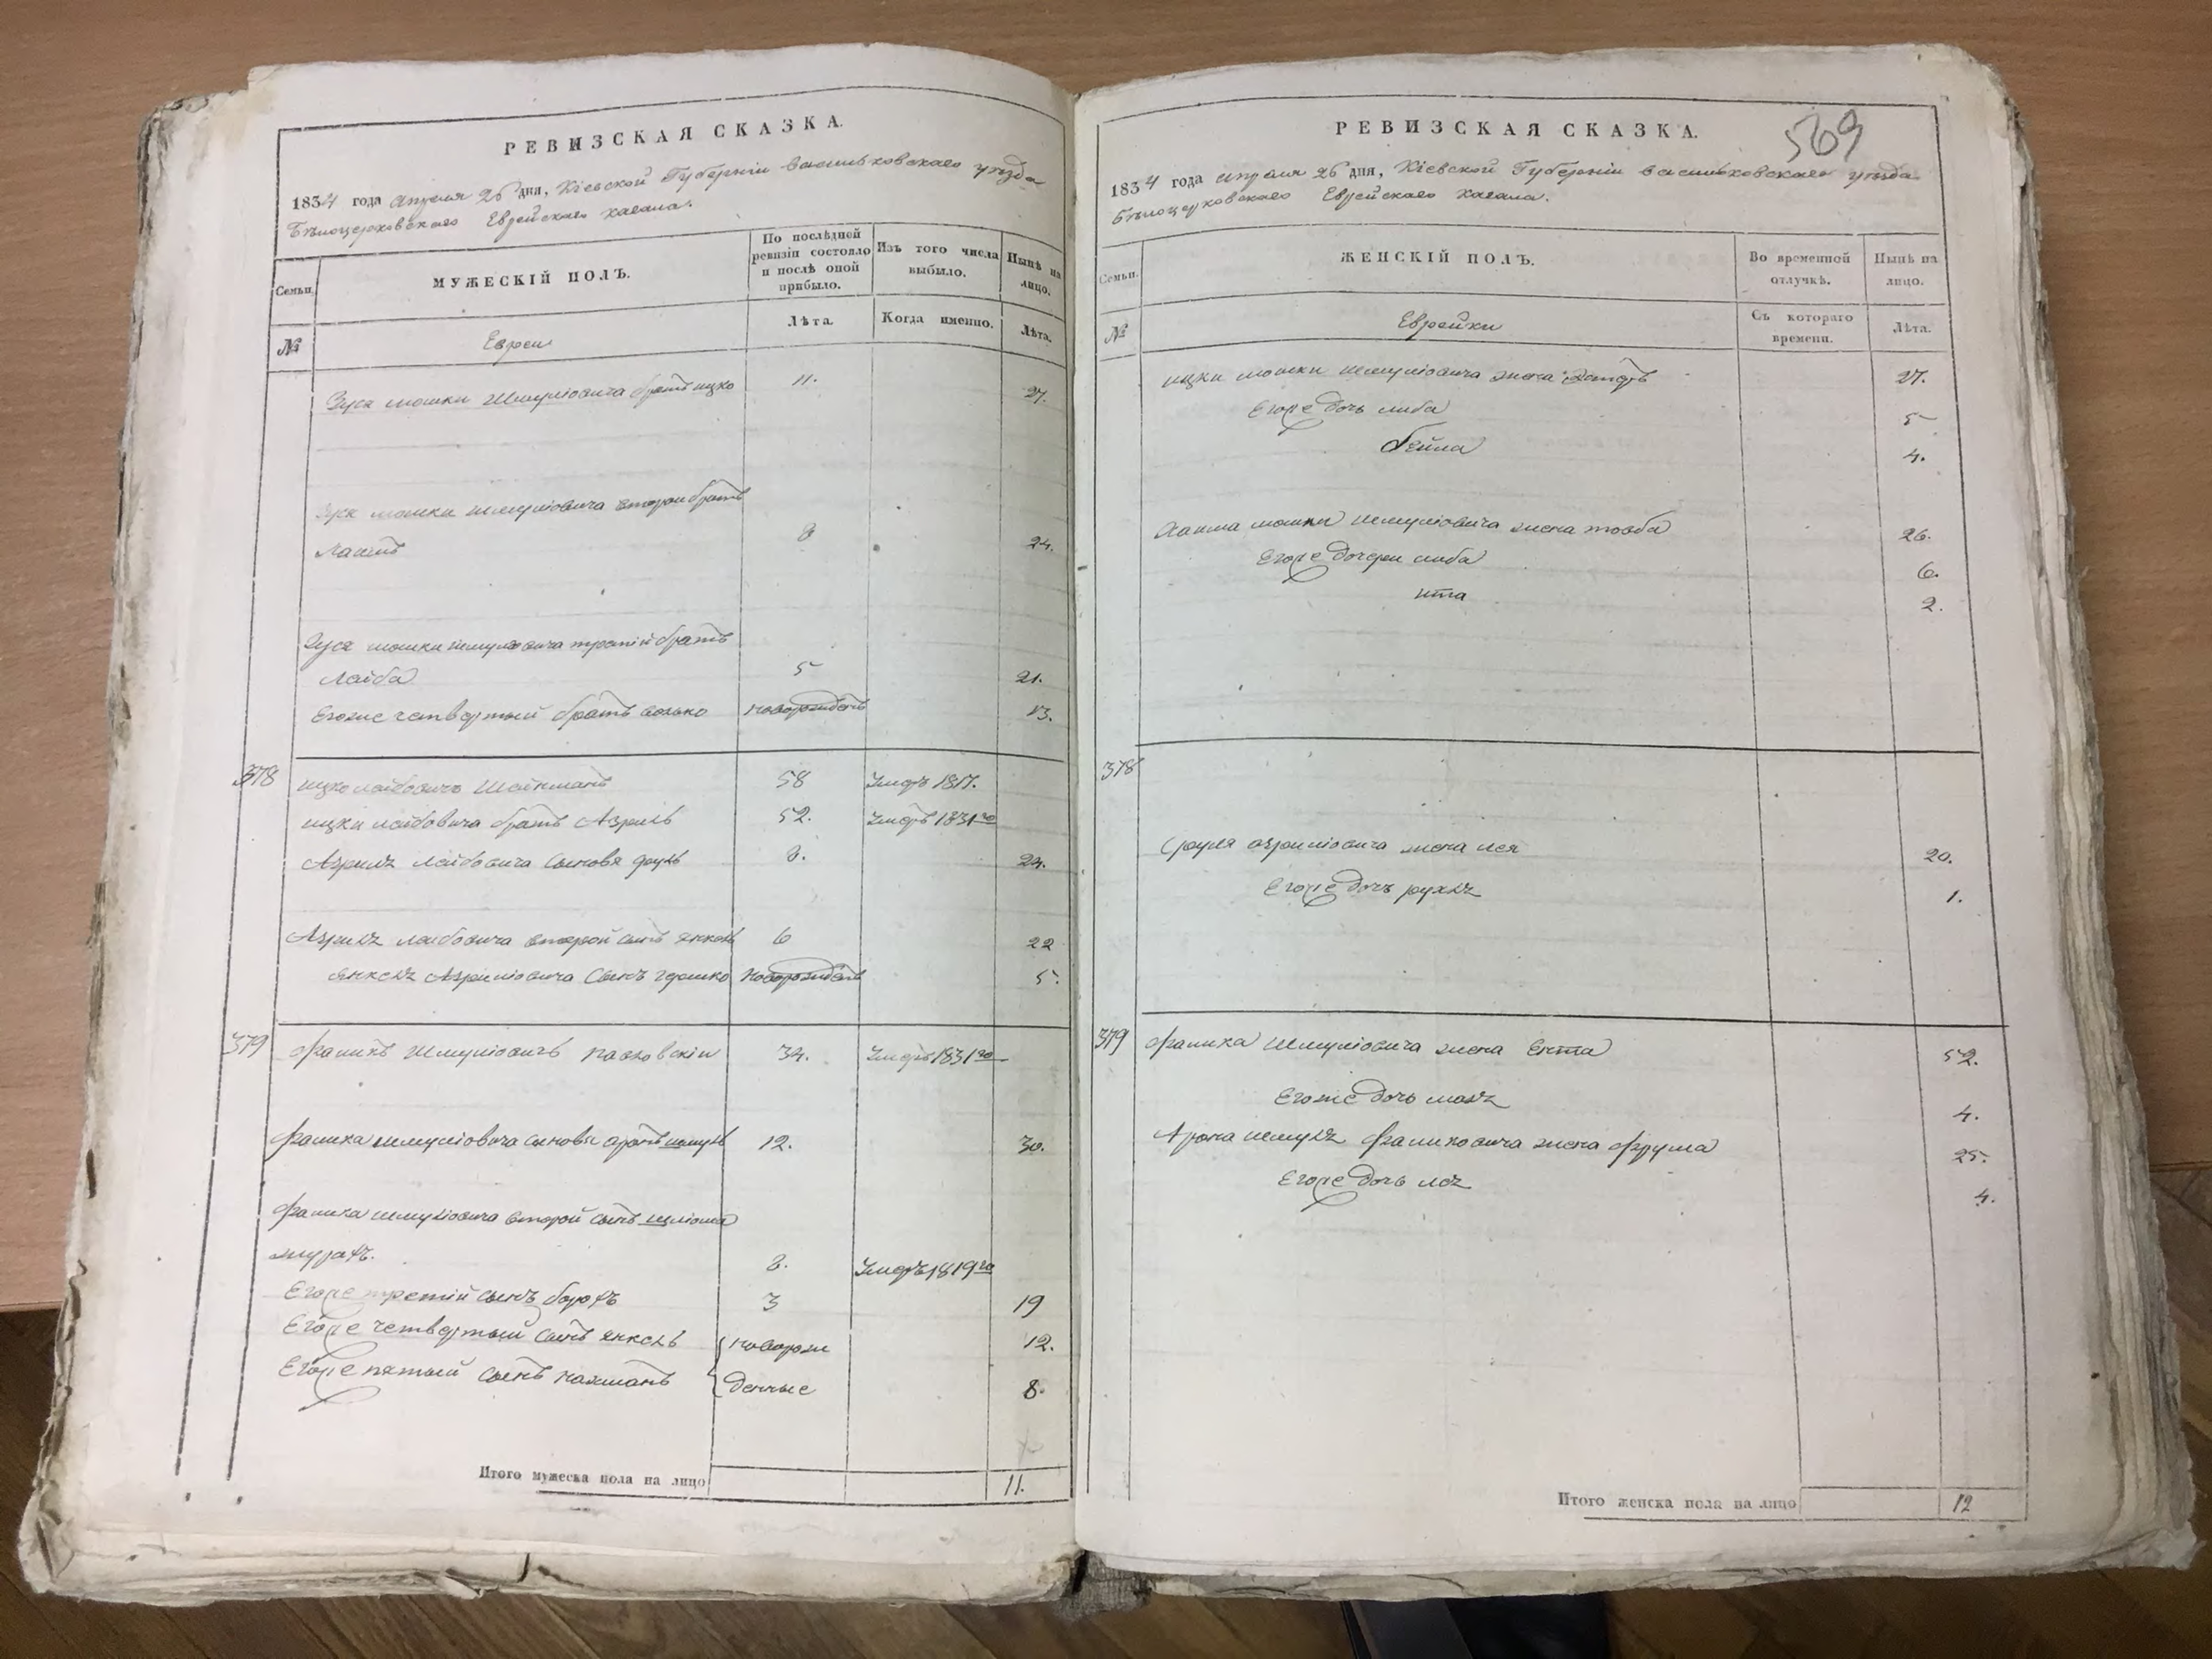 РЕВИЗСКАЯ СКАЗКА.
1834 года апреля 26 дня, Кіевской Губерніи васильковскаго уезда
Белоцерковскаго Еврейскаго кагала.
Семьи.
МУЖЕСКІЙ ПОЛЪ.
По последней ревизіи состояло и после оной прибыло.
Изъ того числа выбыло.
Ныне на лицо.
№
Евреи
Лета.
Когда именно.
Лета.
Зуся мошки Шмуліовича братъ ицко 11. 27.
Зуся мошки шмуліовича второй братъ
8 24.
Зуся мошки шмуліовича третій братъ
Лейба 5 21.
Егоже четвертый братъ волько новорожденъ 13.
378 ицко лейбовичъ 58 умеръ 1817.
ицки лейбовича братъ Азриль 52. умеръ 1831го
Азриля лейбовича сыновя сруль 8. 24.
Азриля лейбовича второй сынъ янкель 6 22
янкеля Азриліовича сынъ гершко новорожденъ 5.
379 Фаликъ Шмуліовичъ 34. умеръ 1831го
Фалика шмуліовича сыновя аронъ шмуль 12. 30.
Фалика шмуліовича второй сынъ шліома
8. умеръ 1819го
Егоже третій сынъ борохъ 3 19
Егоже четвертый сынъ янкель новорож 12.
Егоже пятый сынъ нахманъ денные 8.
Итого мужеска пола на лицо 11.
569
РЕВИЗСКАЯ СКАЗКА.
1834 года апреля 26 дня, Кіевской Губерніи васильковскаго уезда
Белоцерковскаго Еврейскаго кагала.
Семьи.
ЖЕНСКІЙ ПОЛЪ.
Во временной отлучке.
Ныне на лицо.
№
Еврейки
Съ котораго времени.
Лета.
ицки мошки шмуліовича жена Эстеръ 27.
Егоже дочь либа 5
бейла 4.
мошки шмуліовича жена товба 26.
Егоже дочери либа 6.
ита 2.
378
Сруля азриліовича жена лея 20.
Егоже дочь рухля 1.
379 Фалика Шмуліовича жена Ента 52.
Егоже дочь маля 4.
Арона шмуля Фаликовича жена фрума 25.
Егоже дочь лея 4.
Итого женска пола на лицо 12